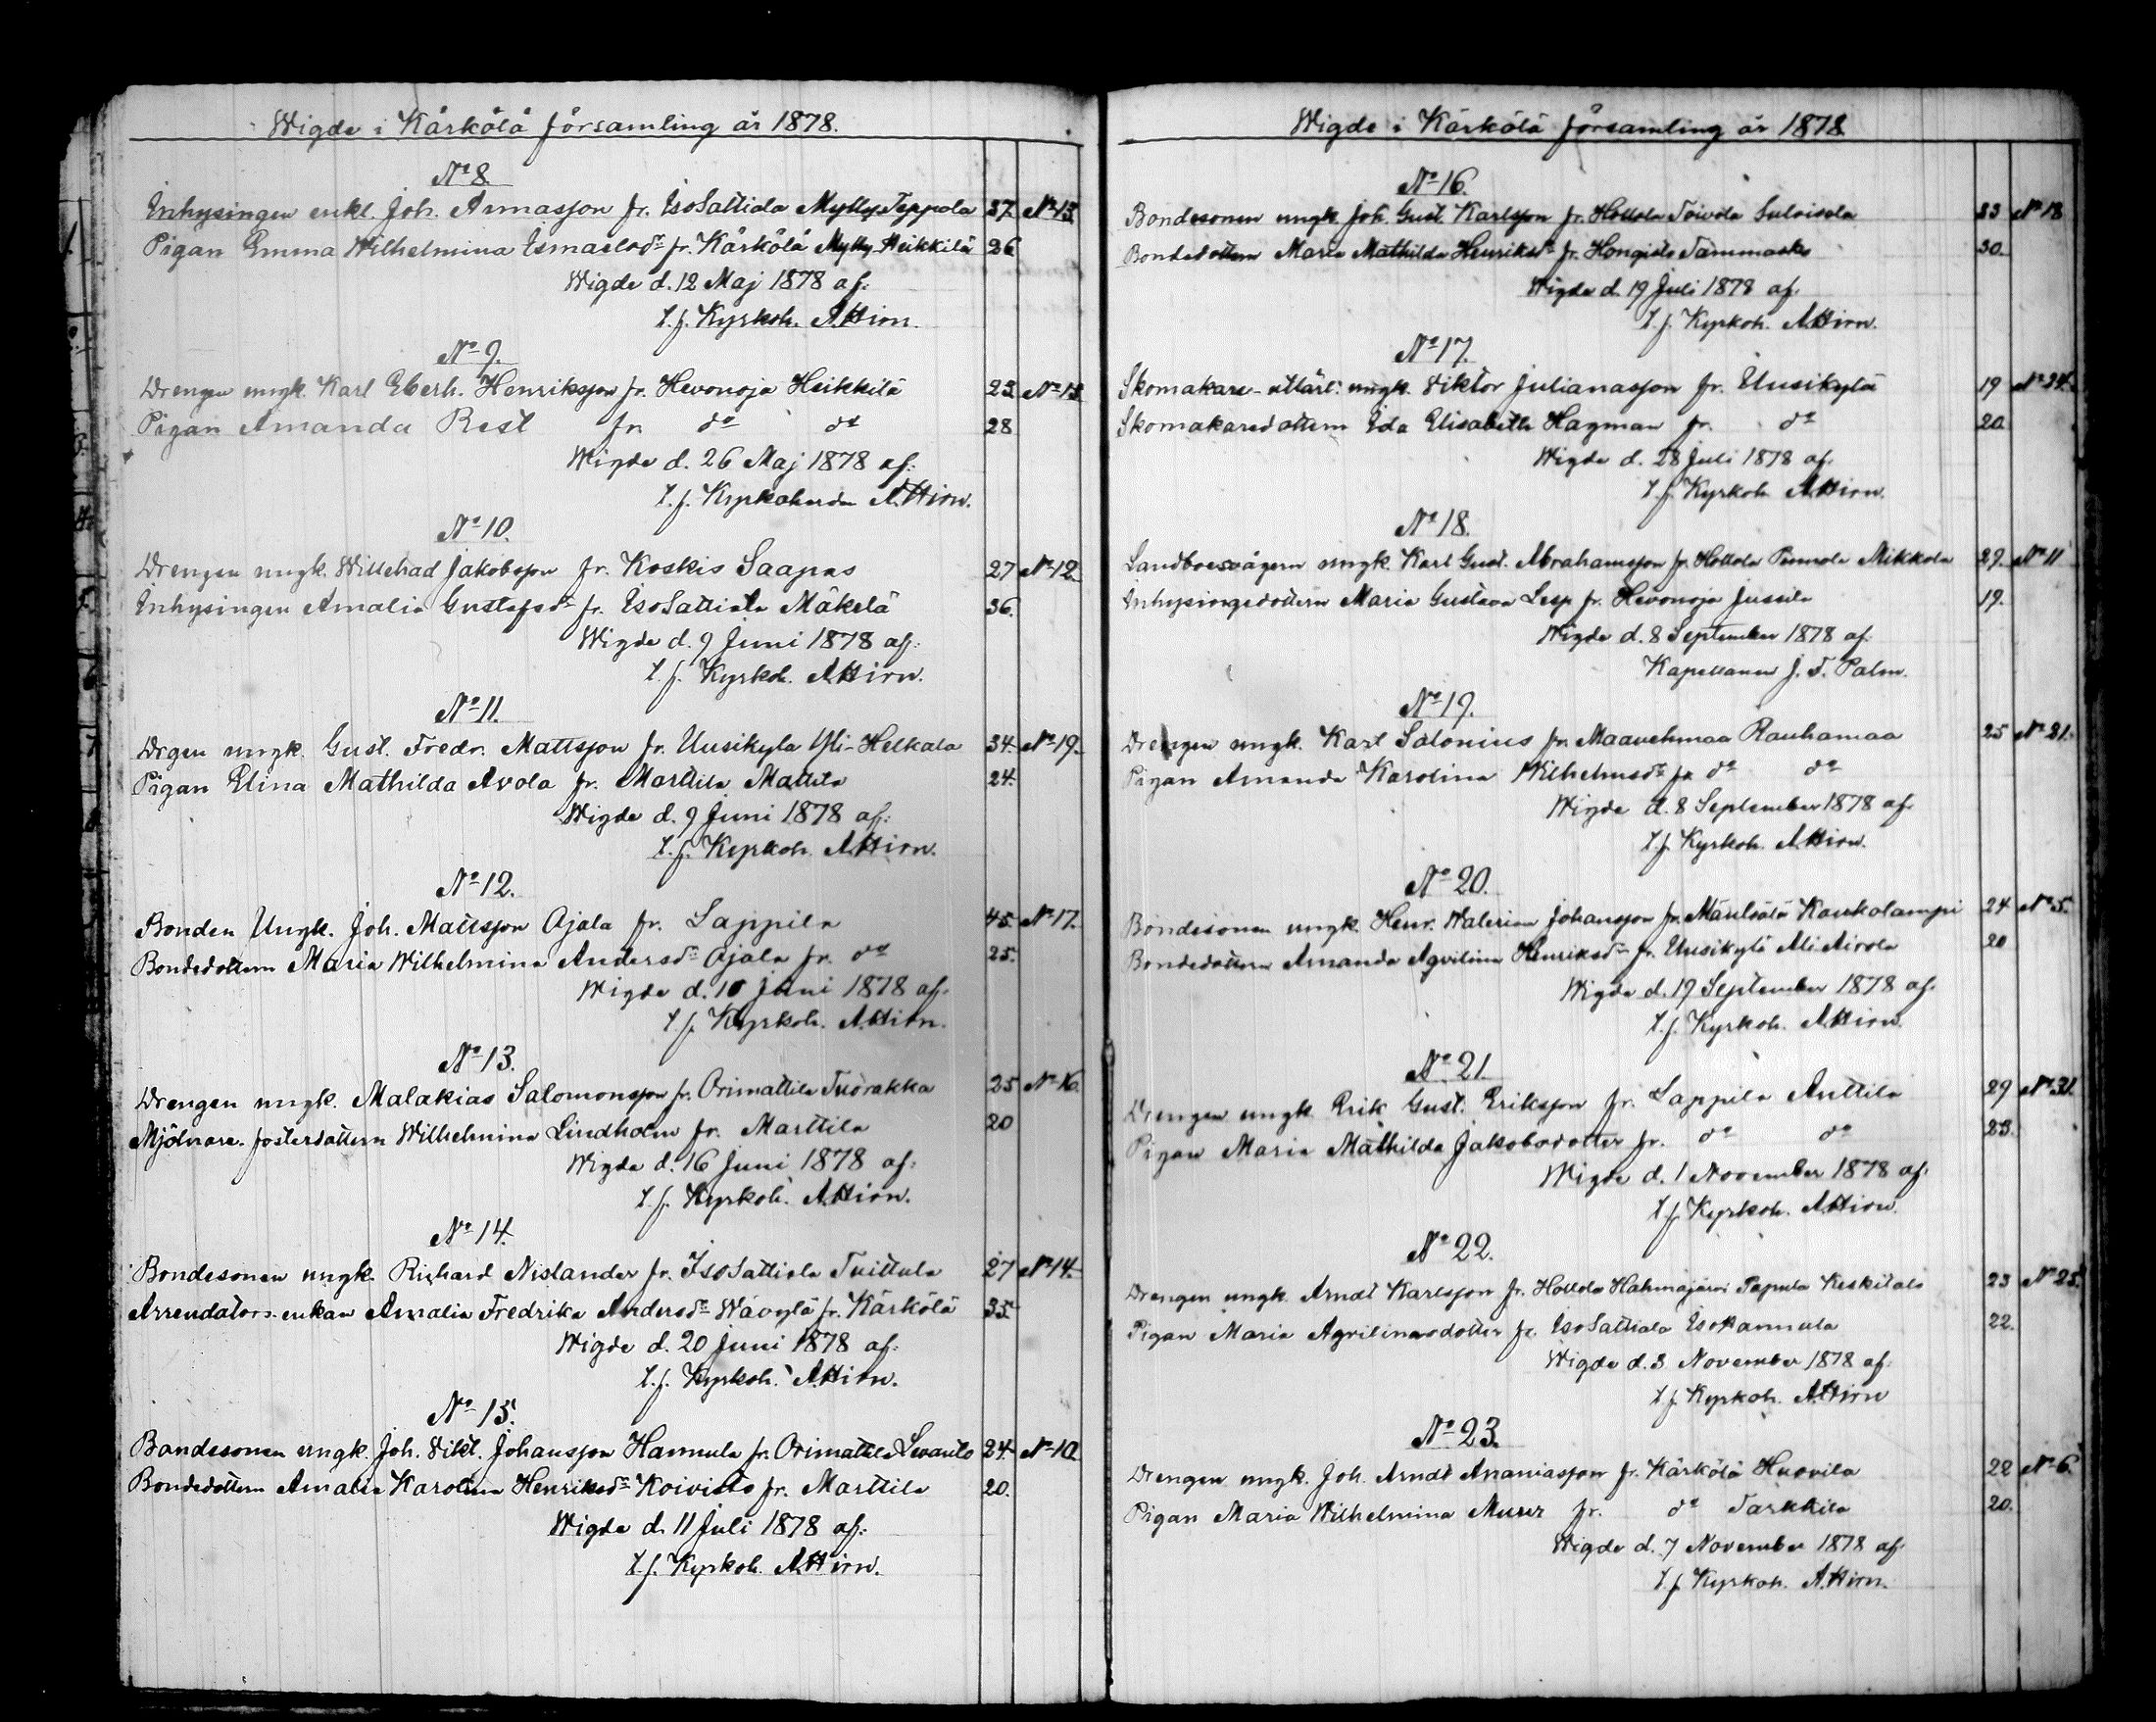 Wigde i Kärkölä församling år 1878.
No 8.
Inhysingen enkl. Joh. Annasson fr. IsoSattiala Mylly Teppola 37. No 13.
Pigan Emma Wilhelmina Ismaelsdr fr. Kärkölä Mylly-Heikkilä 26
Wigde d. 12 Maj 1878 af:
t.f. Kyrkoh. A. Hirn.
No 9.
Drengen ungk. Karl Eberh. Henriksson fr. Hevonoja Heikkilä 23 No 15
Pigan Amanda Rest fr. do do 28
Wigde d. 26 Maj 1878 af:
t.f. Kyrkoherde A. Hirn.
No 10.
Drengen ungk. Willehad Jakobsson fr. Koskis Saapas 27 No 12.
Inhysingen Amalia Gustafsdr fr. IsoSattiala Mäkelä 36.
Wigde d. 9 Juni 1878 af:
t.f. Kyrkoh. A. Hirn.
No 11.
Drgen ungk. Gust. Fredr. Mattsson fr. Uusikylä Yli-Helkala 34. No 19.
Pigan Elina Mathilda Avola fr. Marttila Mattila 24.
Wigde d. 9 Juni 1878 af:
t.f. Kyrkoh. A. Hirn.
No 12.
Bonden Ungk. Joh. Mattsson Ojala fr. Lappila 45. No 17.
Bondedottern Maria Wilhelmina Andersdr Ojala fr. do 25.
Wigde d. 10 Juni 1878 af.
t.f. Kyrkoh. A. Hirn.
No 13.
Drengen ungk. Malakias Salomonsson fr. Orimattila Tuorakka 25 No 16.
Mjölnare-fosterdottern Wilhelmina Lindholm fr. Marttila 20
Wigde d. 16 Juni 1878 af:
t.f. Kyrkoh. A. Hirn.
No 14.
Bondesonen ungk. Richard Nislander fr. IsoSattiala Tuittula 27 No 14.
Arrendators-enkan Amalia Fredrika Andersdr Wävylä fr. Kärkölä 35
Wigde d. 20 Juni 1878 af:
t.f. Kyrkoh. A. Hirn.
No 15.
Bondesonen ungk. Joh. Vikt. Johansson Hannula fr. Orimattila Levanto 24. No 10.
Bondedottern Amalia Karolina Henriksdr Koivisto fr. Marttila 20.
Wigde d. 11 Juli 1878 af:
t.f. Kyrkoh. A. Hirn.
Wigde i Kärkölä församling år 1878
No 16.
Bondesonen ungk. Joh. Gust. Karlsson fr. Hollola Toivola Suloisela 33 No 18
Bondedottern Maria Mathilda Henriksdr fr. Hongisto Tammasko 30.
Wigde d. 19 Juli 1878 af.
t.f. Kyrkoh. A. Hirn.
No 17.
Skomakare-utlärl. ungk. Viktor Julianasson fr. Uusikylä 19 No 24.
Skomakaredottern Ida Elisabeth Hagman fr. do 20.
Wigde d. 28 Juli 1878 af.
t.f. Kyrkoh. A. Hirn.
No 18.
Landboesvågern ungk. Karl Gust. Abrahamsson fr. Hollola Pennola Mikkola 29. No 11
Inhysingedottern Maria Gustava Lesp fr. Hevonoja Jussila 19.
Wigde d. 8 September 1878 af.
Kapellanen J. F. Palm.
No 19.
Drengen ungk. Karl Salonius fr. Maavehmaa Rauhamaa 25 No 21.
Pigan Amanda Karolina Wilhelmsdr fr do do
Wigde d. 8 September 1878 af.
t.f. Kyrkoh. A. Hirn.
No 20.
Bondesonen ungk. Henr. Walerian Johansson fr. Mäntsälä Kaukalampi 24 No 5.
Bondedottern Amanda Agvilina Henriksdr fr. Uusikylä Ali Airola 20
Wigde d. 19 September 1878 af.
t.f. Kyrkoh. A. Hirn.
No 21.
Drengen ungk. Erik Gust. Eriksson fr. Lappila Anttila 29 No 31.
Pigan Maria Mathilda Jakobsdotter fr. do do 23.
Wigde d. 1 November 1878 af.
t.f. Kyrkoh. A. Hirn.
No 22.
Drengen ungk. Arndt Karlsson fr. Hollola Hahmajärvi Papula Keskitalo 23 No 25.
Pigan Maria Agvilinasdotter fr. IsoSattiala IsoHannula 22.
Wigde d. 3 November 1878 af.
t.f. Kyrkoh. A. Hirn
No 23.
Drengen ungk. Joh. Arndt Ananiasson fr. Kärkölä Huovila 22 No 6.
Pigan Maria Wilhelmina Murr fr. do Tarkkila 20.
Wigde d. 7 November 1878 af
t.f. Kyrkoh. A. Hirn.